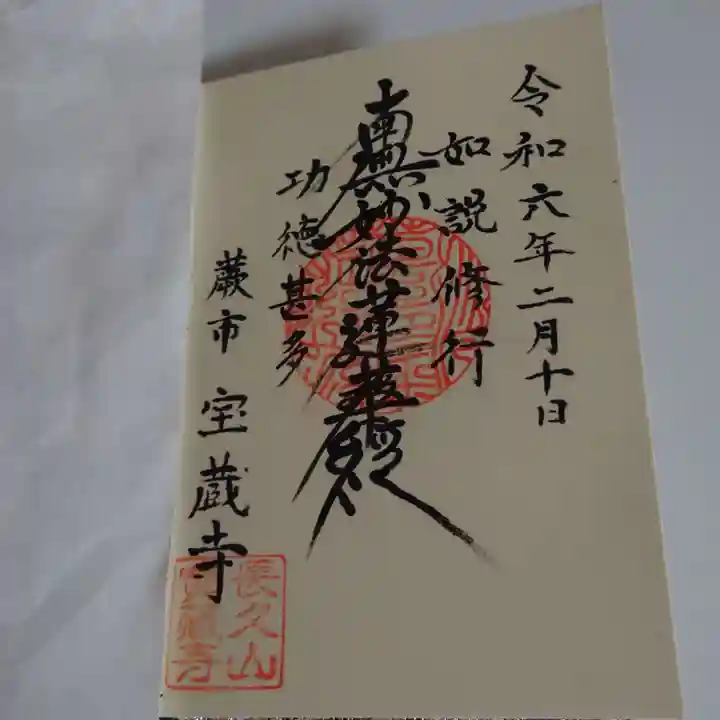 令和六年二月十日
如説修行
南無妙法蓮華経
功徳甚多
蕨市 宝蔵寺
長久山
寳蔵寺